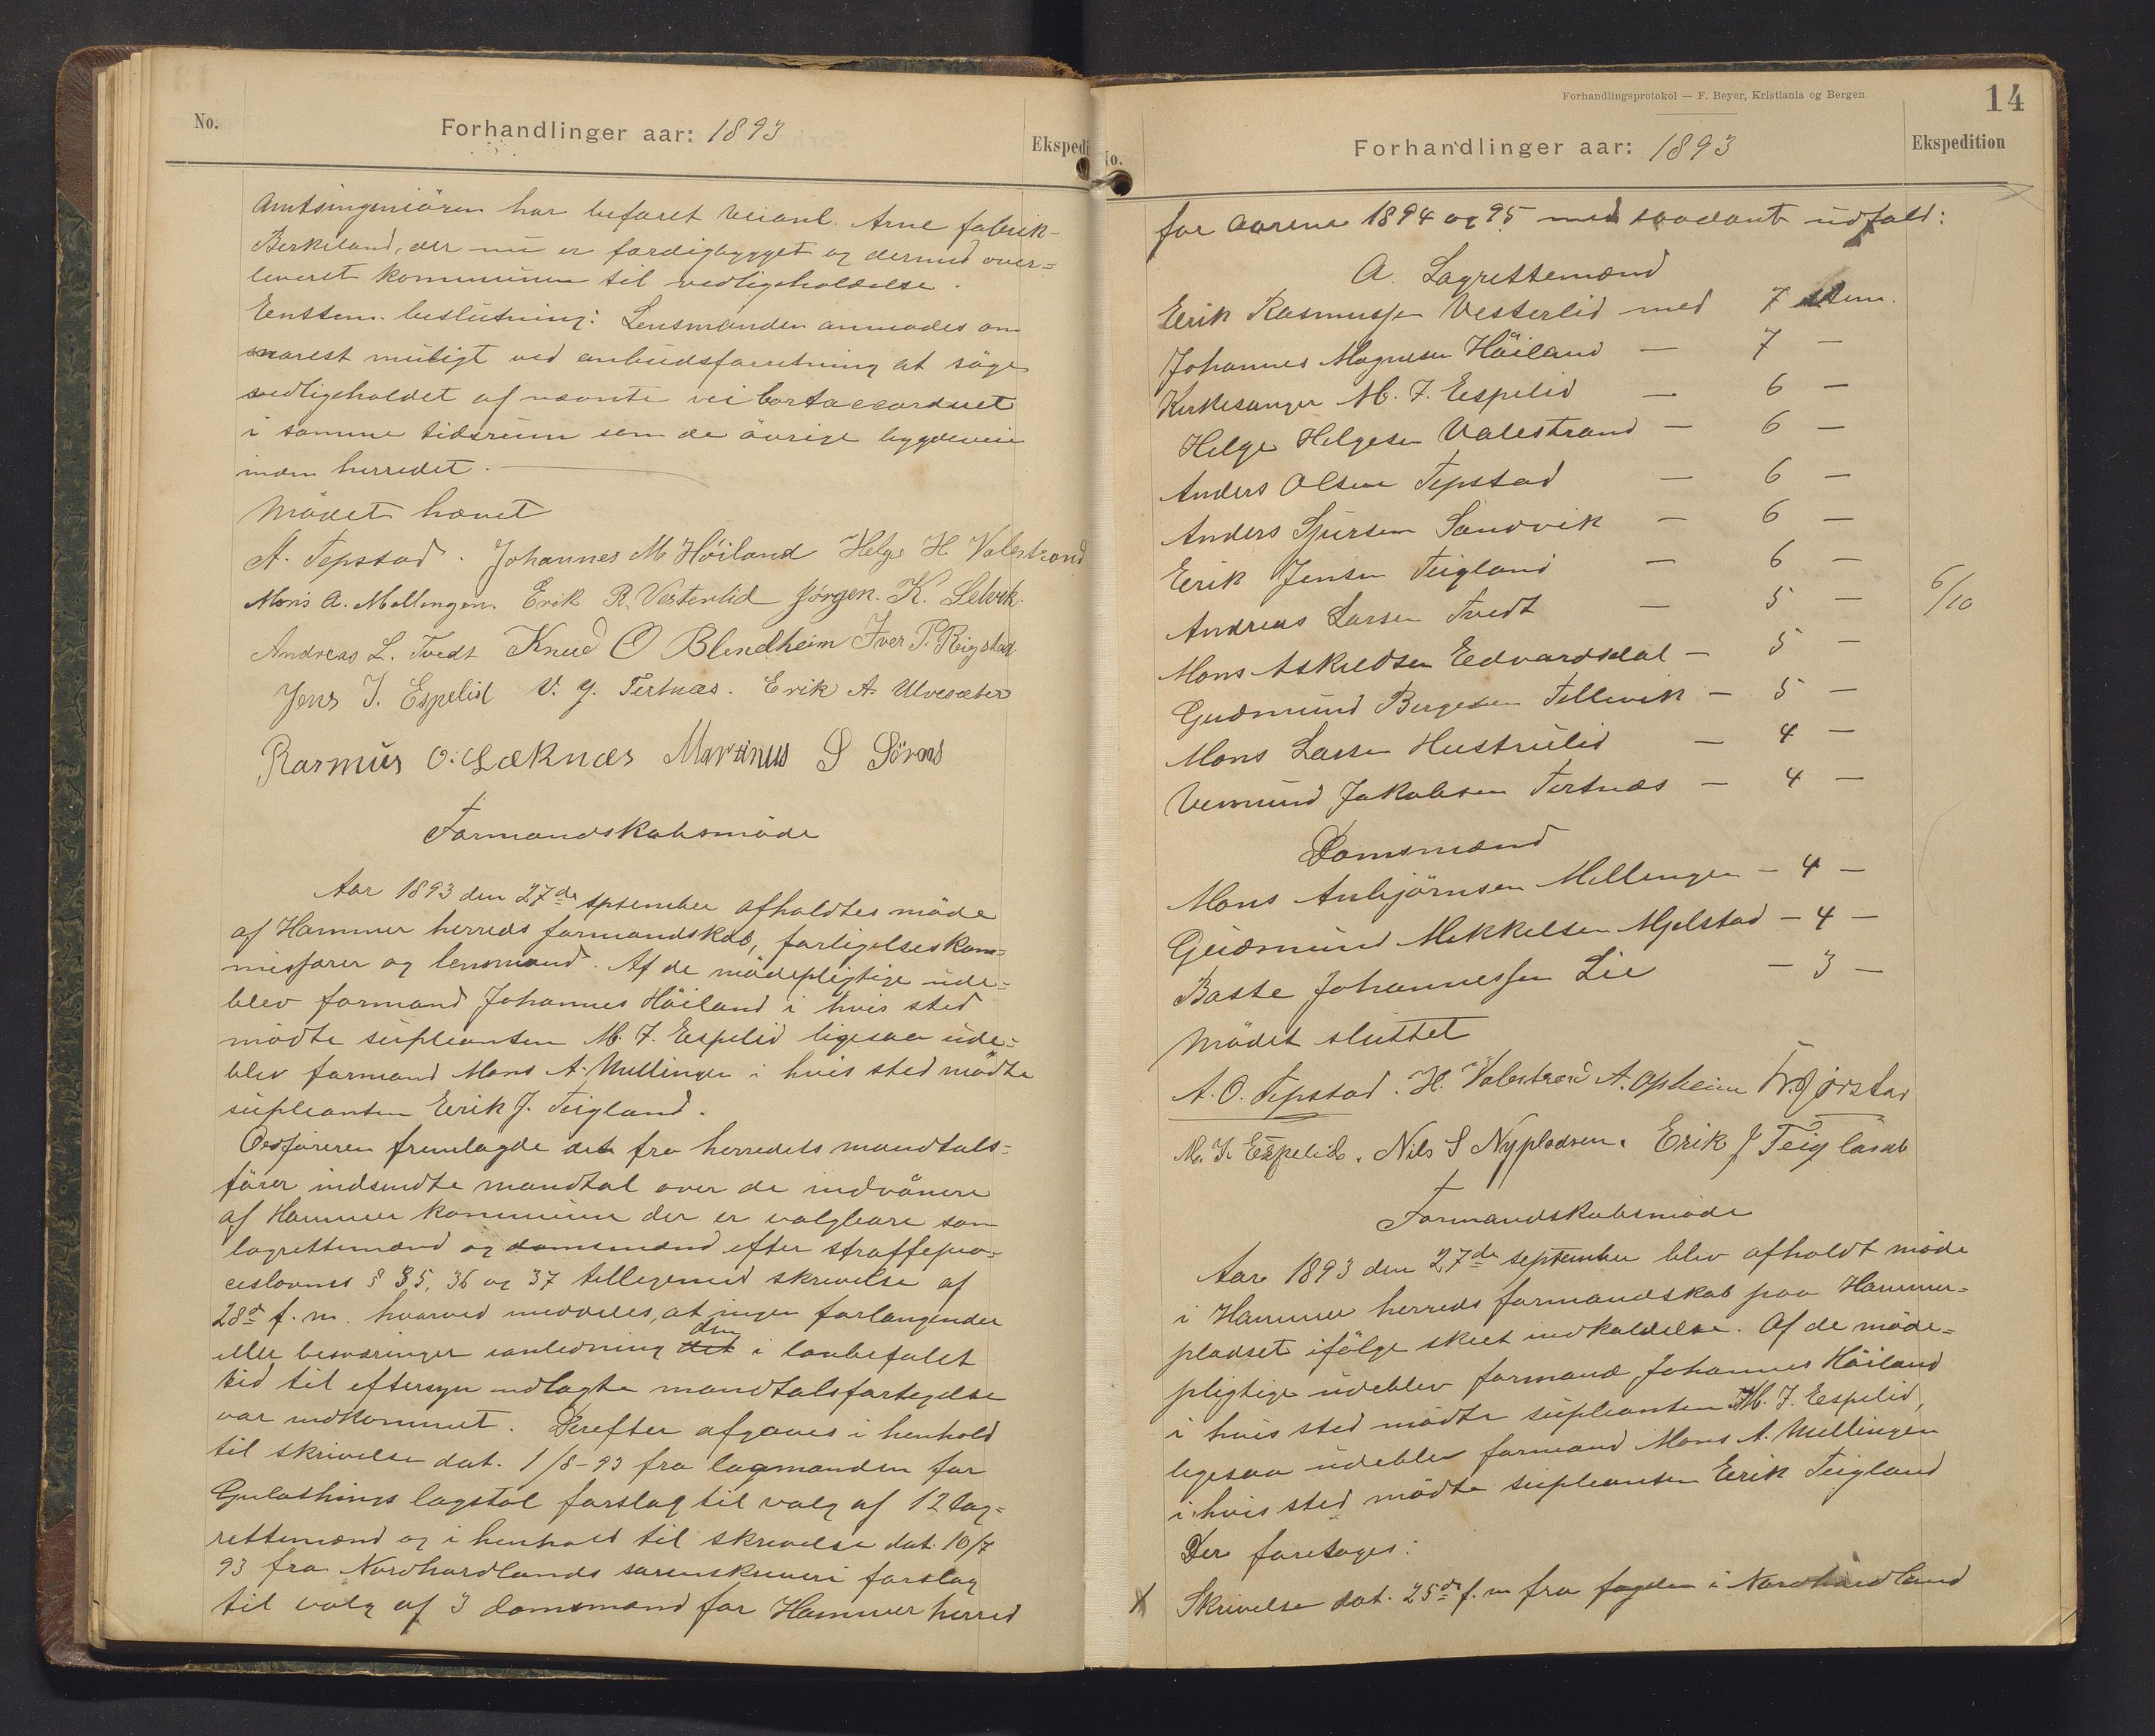 No.
Forhandlinger aar: 1893
Ekspedi
Amtsingeniören har befaret veianl. Arne fabrik-
Birkeland, der nu er færdigbygget og dermed over=
leveret kommunen til vedligeholdelse.
Enstem. beslutning: Lensmanden anmodes om
snarest muligt ved anbudsforretning at söge
vedligeholdet af nævnte vei bortaccorderet
i samme tidsrum som de övrige bygdeveie
inden herredet.
Mödet hævet
A. Tepstad. Johannes M Höiland Helge H Valestrand
Mons A. Mellingen. Erik R. Vesterlid Jørgen. K. Selvik.
Andreas L. Tvedt Knud O Blindheim Iver P. Reigstad
Jens J. Espelid V. J. Tertnæs. Erik A. Ulvesæter
Rasmus O. Læknæs Martinus S Söraas
Formandskabsmöde
Aar 1893 den 27de september afholdtes möde
af Hammer herreds formandskab, forligelseskom=
missærer og lensmand. Af de mödepligtige ude=
blev formand Johannes Höiland i hvis sted
mödte supleanten M. J. Espelid ligesaa ude=
blev formand Mons A. Mellingen i hvis sted mödte
supleanten Eerik J. Teigland.
Ordföreren fremlagde det fra herredets mandtals=
förer indsendte mandtal over de indvånere
af Hammer kommune der er valgbare som
lagrettemænd og domsmænd efter straffepro=
ceslovens § 35, 36 og 37 tilligemed skrivelse af
28de f. m. hvorved meddeles, at ingen forlangender
eller besværinger ianledning det den i lovbefalet
tid til eftersyn udlagte mandtalsfortegnelse
var indkommet. Derefter afgaves i henhold
til skrivelse dat. 1/8-93 fra lagmanden for
Gulathings lagstol forslag til valg af 12 lag=
rettemænd og i henhold til skrivelse dat. 10/7
93 fra Nordhordlands sorenskriveri forslag
til valg af 3 domsmænd for Hammer herred
Forhandlingsprotokol — F. Beyer, Kristiania og Bergen
14
No.
Forhandlinger aar: 1893
Ekspedition
for aarene 1894 og 95 med saadant udfald:
A. Lagrettemænd
Eerik Rasmussen Vesterlid med 7 stem.
Johannes Magnesen Höiland — 7 —
Kirkesanger M. J. Eespelid — 6 —
Helge Helgesen Valestrand — 6 —
Anders Olsen Tepstad — 6 —
Anders Sjursen Sandvik — 6 —
Eerik Jensen Teigland — 6 —
Andreas Larsen Tvedt — 5 — 6/10
Mons Askildsen Eedvardsdal — 5 —
Gudmund Bergesen Tellevik — 5 —
Mons Larsen Hustrulid — 4 —
Vemund Jakobsen Tertnæs — 4 —
Domsmænd
Mons Anbjörnsen Mellingen — 4 —
Gudmund Mikkelsen Mjelstad — 4 —
Baste Johannessen Lie — 3 —
Mödet sluttet
A. O. Tepstad. H. Valestrand A. Opheim Fr. Gjørstad
M. J. Espelid. Nils S Nypladsen. Erik J Teigland
Formandskabsmöde
Aar 1893 den 27de september blev afholdt möde
i Hammer herreds formandskab paa Hammer=
pladset ifölge skeet indkaldelse. Af de möde=
pligtige udeblev formand Johannes Höiland
i hvis sted mödte supleanten M. J. Eespelid,
ligesaa udeblev formand Mons A. Mellingen
i hvis sted mödte supleanten Eerik Teigland
Der foretoges:
X Skrivelse dat. 25de f. m fra fogden i Nordhordland